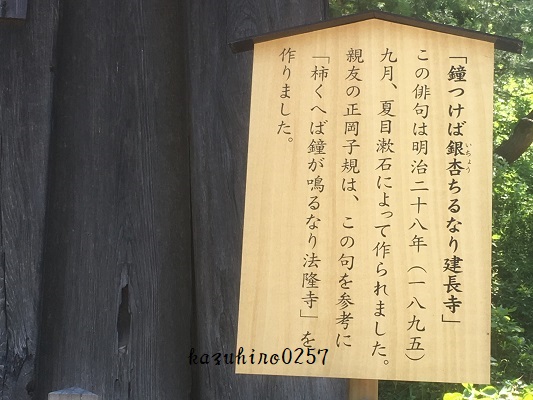 「鐘つけば銀杏ちるなり建長寺」
いちょう
この俳句は明治二十八年（一八九五）
九月、夏目漱石によって作られました。
親友の正岡子規は、この句を参考に
「柿くへば鐘が鳴るなり法隆寺」を
作りました。
kazuhiro0257